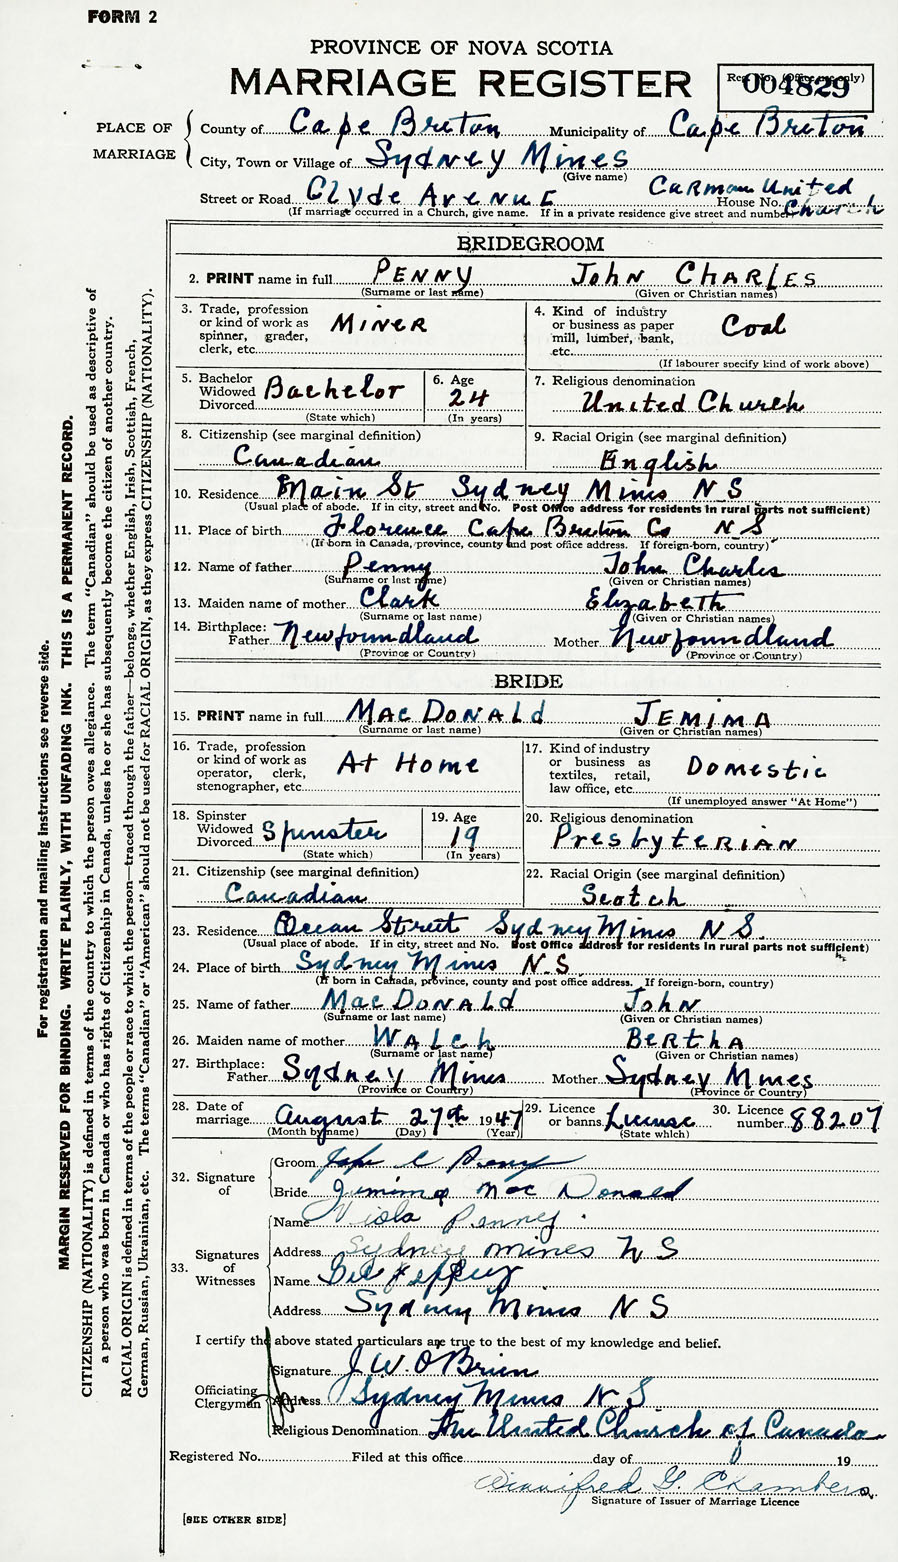 FORM 2
PROVINCE OF NOVA SCOTIA
MARRIAGE REGISTER
Reg. No. (Office use only)
004829
PLACE OF MARRIAGE
County of Cape Breton Municipality of Cape Breton
City, Town or Village of Sydney Mines
(Give name)
Street or Road Clyde Avenue House No. Carman United Church
(If marriage occurred in a Church, give name. If in a private residence give street and number)
BRIDEGROOM
2. PRINT name in full PENNY JOHN CHARLES
(Surname or last name) (Given or Christian names)
3. Trade, profession or kind of work as spinner, grader, clerk, etc. MINER
4. Kind of industry or business as paper mill, lumber, bank, etc. Coal
(If labourer specify kind of work above)
5. Bachelor Widowed Divorced Bachelor
(State which)
6. Age 24
(In years)
7. Religious denomination
United Church
8. Citizenship (see marginal definition)
Canadian
9. Racial Origin (see marginal definition)
English
10. Residence Main St Sydney Mines N S
(Usual place of abode. If in city, street and No. Post Office address for residents in rural parts not sufficient)
11. Place of birth Florence Cape Breton Co N S
(If born in Canada, province, county and post office address. If foreign-born, country)
12. Name of father Penny John Charles
(Surname or last name) (Given or Christian names)
13. Maiden name of mother Clark Elizabeth
(Surname or last name) (Given or Christian names)
14. Birthplace: Father Newfoundland Mother Newfoundland
(Province or Country) (Province or Country)
BRIDE
15. PRINT name in full MacDONALD JEMIMA
(Surname or last name) (Given or Christian names)
16. Trade, profession or kind of work as operator, clerk, stenographer, etc. At Home
17. Kind of industry or business as textiles, retail, law office, etc. Domestic
(If unemployed answer "At Home")
18. Spinster Widowed Divorced Spinster
(State which)
19. Age 19
(In years)
20. Religious denomination
Presbyterian
21. Citizenship (see marginal definition)
Canadian
22. Racial Origin (see marginal definition)
Scotch
23. Residence Ocean Street Sydney Mines N S
(Usual place of abode. If in city, street and No. Post Office address for residents in rural parts not sufficient)
24. Place of birth Sydney Mines N.S
(If born in Canada, province, county and post office address. If foreign-born, country)
25. Name of father MacDONALD JOHN
(Surname or last name) (Given or Christian names)
26. Maiden name of mother WALCH BERTHA
(Surname or last name) (Given or Christian names)
27. Birthplace: Father Sydney Mines Mother Sydney Mines
(Province or Country) (Province or Country)
28. Date of marriage August 27th 1947
(Month by name) (Day) (Year)
29. Licence or banns License
(State which)
30. Licence number 88207
32. Signature of
Groom John C Penny
Bride Jemima MacDonald
33. Signatures of Witnesses
Name Viola Penney
Address Sydney Mines N S
Name
Address Sydney Mines N S
I certify the above stated particulars are true to the best of my knowledge and belief.
Officiating Clergyman
Signature J W. O'Brien
Address Sydney Mines N S
Religious Denomination The United Church of Canada
Registered No. Filed at this office day of 19
Winnifred G. Chambers
Signature of Issuer of Marriage Licence
[SEE OTHER SIDE]
For registration and mailing instructions see reverse side.
MARGIN RESERVED FOR BINDING. WRITE PLAINLY, WITH UNFADING INK. THIS IS A PERMANENT RECORD.
CITIZENSHIP (NATIONALITY) is defined in terms of the country to which the person owes allegiance. The term "Canadian" should be used as descriptive of
a person who was born in Canada or who has rights of Citizenship in Canada, unless he or she has subsequently become the citizen of another country.
RACIAL ORIGIN is defined in terms of the people or race to which the person—traced through the father—belongs, whether English, Irish, Scottish, French,
German, Russian, Ukrainian, etc. The terms "Canadian" or "American" should not be used for RACIAL ORIGIN, as they express CITIZENSHIP (NATIONALITY).